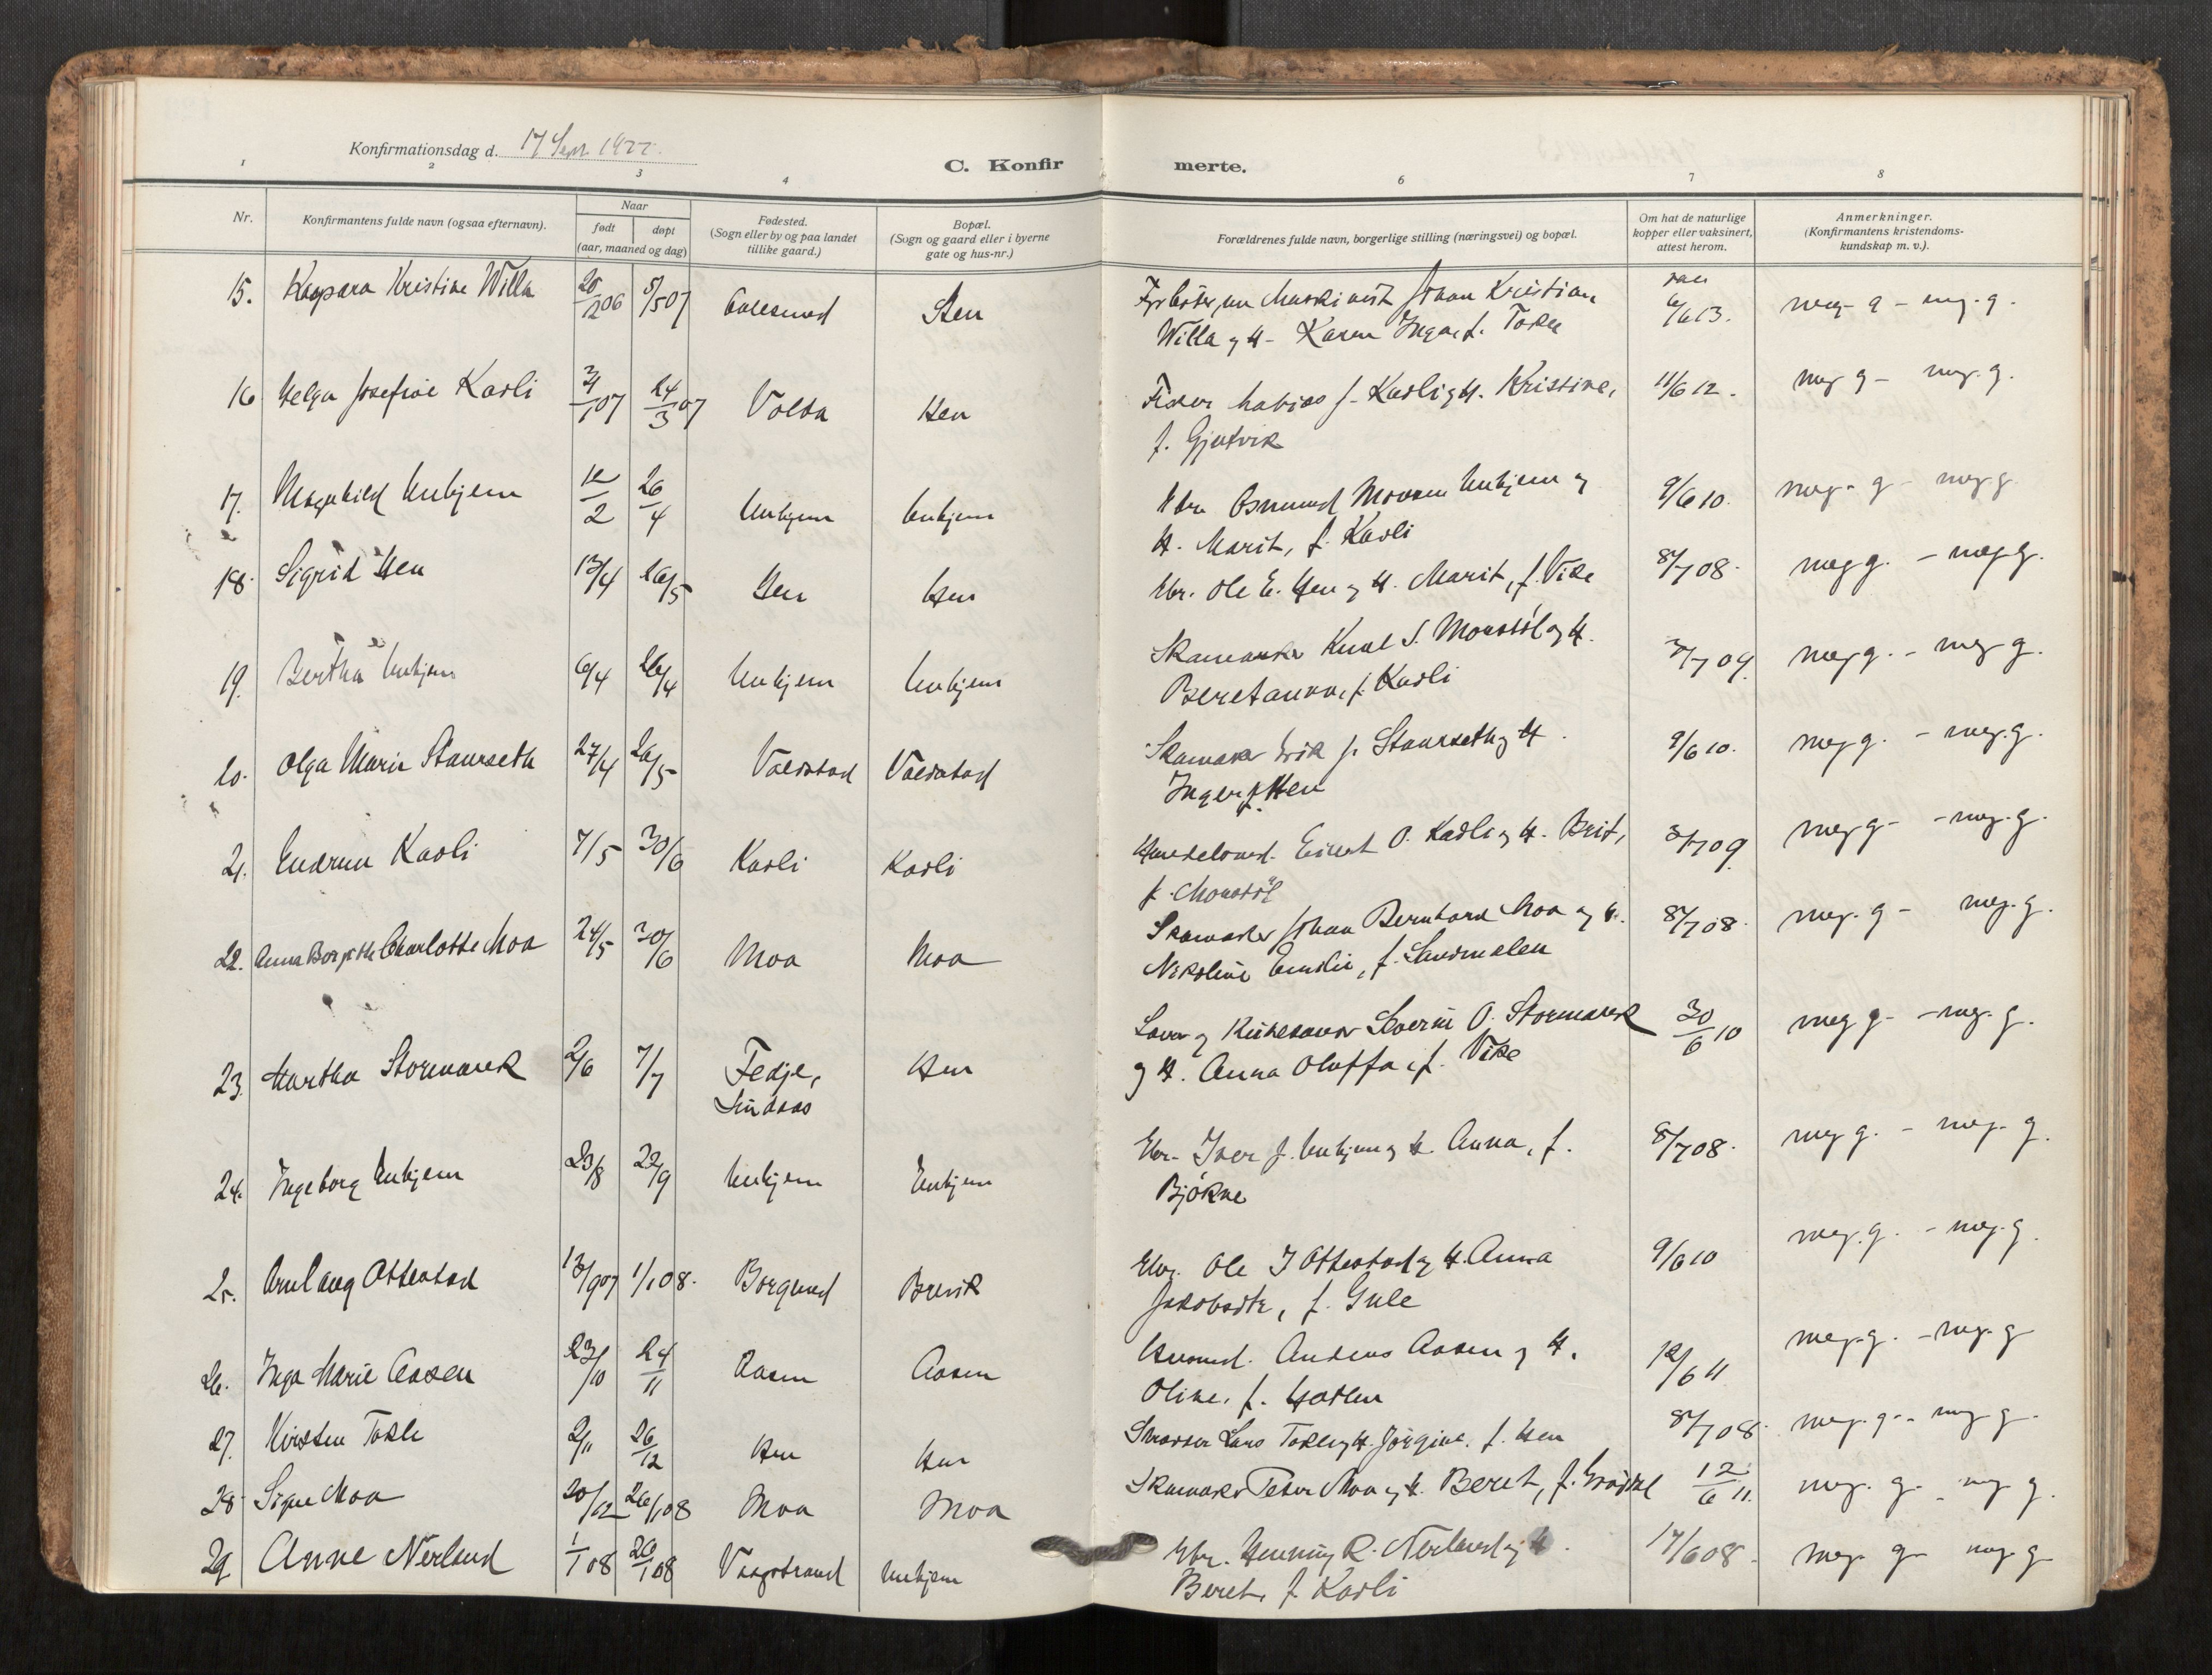 Konfirmationsdag d. 17 Sept. 1922.
C. Konfirmerte.
1 2 3 4 6 7 8
Nr.
Konfirmantens fulde navn (ogsaa efternavn).
Naar
født døpt
(aar, maaned og dag)
Fødested.
(Sogn eller by og paa landet
tillike gaard.)
Bopæl.
(Sogn og gaard eller i byerne
gate og hus-nr.)
Forældrenes fulde navn, borgerlige stilling (næringsvei) og bopæl.
Om hat de naturlige
kopper eller vaksinert,
attest herom.
Anmerkninger.
(Konfirmantens kristendoms-
kundskap m. v.).
15. Kaspara Kristine Willa 5/5 07 Aalesund Hen Johan Kristian 6/6 13. meg. g - meg. g.
Willa og H. Karen Inga, f. Tokle
16 Helga Josefine Kavli 24/3 07 Volda Hen Fisker J. Kavli og H. Kristine, 11/6 12. meg g - meg. g.
f. Gjutvik
17. Magnhild Unhjem 12/2 26/4 Unhjem Unhjem Gbr. Osmund Monsen Unhjem og 9/6 10. meg. g - meg g.
H. Marit, f. Kavli
18. Sigrid Hen 13/4 26/5 Hen Hen Gbr. Ole E. Hen og H. Marit, f. Vike 8/7 08. meg g. - meg. g.
19. Bertha Unhjem 6/4 26/4 Unhjem Unhjem Skomaker Knut S. Monssöl og H. 3/7 09. meg g. - meg g.
Beretanna, f. Kavli
20. Olga Marie Staurseth 27/4 26/5 Voldstad Voldstad Skomaker Erik J. Staurseth og H. 9/6 10. meg g. - meg. g.
Inger, f. Hen
21. Gudrun Kavli 7/5 30/6 Kavli Kavli Handelsmd. Einert O. Kavli og H. Brit, 3/7 09 meg g - meg. g.
f. Monssöl
22. Anna Borgitte Charlotte Moa 24/5 30/6 Moa Moa Skomaker Johan Bernhard Moa og H. 8/7 08. meg. g - meg. g.
Nikoline Emilie, f. Sandmælen
23. Martha Stormark 2/6 7/7 Fedje, Hen Lærer og Kirkesanger Severin O. Stormark 30/6 10 meg g - meg. g.
Lindaas og H. Anna Oluffa, f. Vike
24. Ingeborg Unhjem 23/8 22/9 Unhjem Unhjem Gbr. Iver J. Unhjem og H. Anna, f. 8/7 08. meg g. - meg. g.
Bjökne
25. Aslaug Ottestad 13/9 07 1/1 08. Borgund Brevik Gbr. Ole I Ottestad og H. Anna 9/6 10 meg. g. - meg. g.
Jakobsdtr, f. Gule
26. Inga Marie Aasen 23/10 24/11 Aasen Aasen Husmd. Anders Aasen og H. 12/6 11 meg. g. - meg. g
Oline, f. Hatlen
27. Kirsten Tokle 2/11 26/12 Hen Hen Skrædder Lars Tokle og H. Jörgine, f. Hen 8/7 08. meg. g. - meg g.
28. Signe Moa 20/12 26/1 08 Moa Moa Skomaker Peter Moa og H. Beret, f. 12/6 11. meg. g. - meg g.
29 Anne Nerland 1/1 08 26/1 08 Vaagstrand Unhjem Gbr. Henning R. Nerland og H. 17/6 08. meg. g - meg g
Beret, f. Kavli